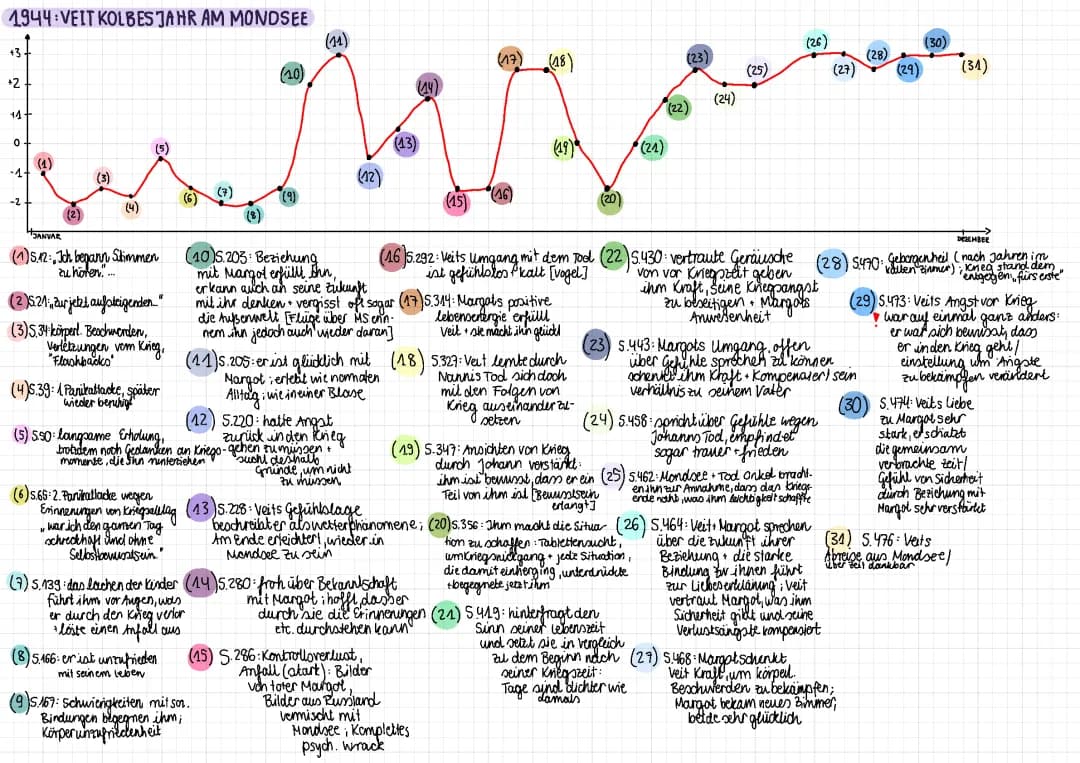 1944: VEIT KOLBES JAHR AM MONDSEE
+3
+2
+1
0
-1
-2
(1)
(2)
(3)
(4)
(5)
(6)
(7)
(8)
(9)
(10)
(11)
(12)
(13)
(14)
(15)
(16)
(17)
(18)
(19)
(20)
(21)
(22)
(23)
(24)
(25)
(26)
(27)
(28)
(29)
(30)
(31)
JANUAR
DEZEMBER
(1) S.12: „Ich begann Stimmen
zu hören."...
(2) S.21: „zur jetzt aufsteigenden.."
(3) S.34: körperl. Beschwerden,
Verletzungen vom Krieg,
"Flashbacks"
(4) S.39: 1. Panikattacke, später
wieder beruhigt
(5) S.50: langsame Erholung,
trotzdem noch Gedanken an Kriegs-
momente, die ihn runterziehen
(6) S.65: 2. Panikattacke wegen
Erinnerungen von Kriegsalltag
„war ich den ganzen Tag
schreckhaft und ohne
Selbstbewusstsein."
(7) S.139: das Lachen der Kinder
führt ihm vor Augen, was
er durch den Krieg verlor
+ löste einen Anfall aus
(8) S.166: er ist unzufrieden
mit seinem Leben
(9) S.167: Schwierigkeiten mit soz.
Bindungen begegnen ihm;
Körperunzufriedenheit
(10) S.203: Beziehung
mit Margot erfüllt ihn,
er kann auch an seine Zukunft
mit ihr denken + vergisst oft sogar
die Außenwelt [Flüge über MS erin-
nern ihn jedoch auch wieder daran]
(11) S.205: er ist glücklich mit
Margot; erlebt wie normalen
Alltag; wie in einer Blase
(12) S.220: hatte Angst
zurück in den Krieg
gehen zu müssen +
sucht deshalb
Gründe, um nicht
zu müssen
(13) S.228: Veits Gefühlslage
beschreibt er als Wetterphänomene;
Am Ende erleichtert, wieder in
Mondsee zu sein
(14) S.280: froh über Bekanntschaft
mit Margot; hofft, dass er
durch sie die Erinnerungen
etc. durchstehen kann
(15) S.286: Kontrollverlust,
Anfall (stark): Bilder
von toter Margot,
Bilder aus Russland
vermischt mit
Mondsee; komplettes
psych. Wrack
(16) S.292: Veits Umgang mit dem Tod
ist gefühllos + kalt [Vogel]
(17) S.314: Margots positive
Lebensenergie erfüllt
Veit + sie macht ihn glückl
(18) S.327: Veit lernte durch
Nannis Tod sich doch
mit den Folgen von
Krieg auseinander zu-
setzen
(19) S.347: Ansichten von Krieg
durch Johann verstärkt:
ihm ist bewusst, dass er ein
Teil von ihm ist [Bewusstsein
erlangt]
(20) S.356: Ihm macht die Situa-
tion zu schaffen: Tablettensucht,
um Kriegsrückgang + jede Situation,
die damit einherging, unterdrückte
+ begegnete jetzt ihm
(21) S.419: hinterfragt den
Sinn seiner Lebenszeit
und setzt sie in Vergleich
zu dem Beginn nach
seiner Kriegszeit:
Tage sind dichter wie
damals
(22) S.430: vertraute Geräusche
von vor Kriegszeit geben
ihm Kraft, seine Kriegsangst
zu beseitigen + Margots
Anwesenheit
(23) S.443: Margots Umgang, offen
über Gefühle sprechen zu können
schenkt ihm Kraft + kompensiert sein
Verhältnis zu seinem Vater
(24) S.458: spricht über Gefühle wegen
Johanns Tod, empfindet
sogar Trauer + Frieden
(25) S.462: Mondsee + Tod Onkel bracht-
en ihn zur Annahme, dass das Kriegs-
ende naht, was ihm Leichtigkeit schaffte
(26) S.464: Veit + Margot sprechen
über die Zukunft ihrer
Beziehung + die starke
Bindung zw ihnen führt
zur Liebeserklärung; Veit
vertraut Margot, was ihm
Sicherheit gibt und seine
Verlustsängste kompensiert
(27) S.468: Margot schenkt
Veit Kraft, um körperl.
Beschwerden zu bekämpfen;
Margot bekam neues Zimmer,
beide sehr glücklich
(28) S.470: Geborgenheit (nach Jahren im
kalten Zimmer); Krieg stand dem
entgegen „fürs erste"
(29) S.473: Veits Angst vor Krieg
! war auf einmal ganz anders:
er war sich bewusst, dass
er in den Krieg geht/
Einstellung um Ängste
zu bekämpfen verändert
(30) S.474: Veits Liebe
zu Margot sehr
stark, er schätzt
die gemeinsam
verbrachte Zeit/
Gefühl von Sicherheit
durch Beziehung mit
Margot sehr verstärkt
(31) S.476: Veits
Abreise aus Mondsee/
über Zeit dankbar